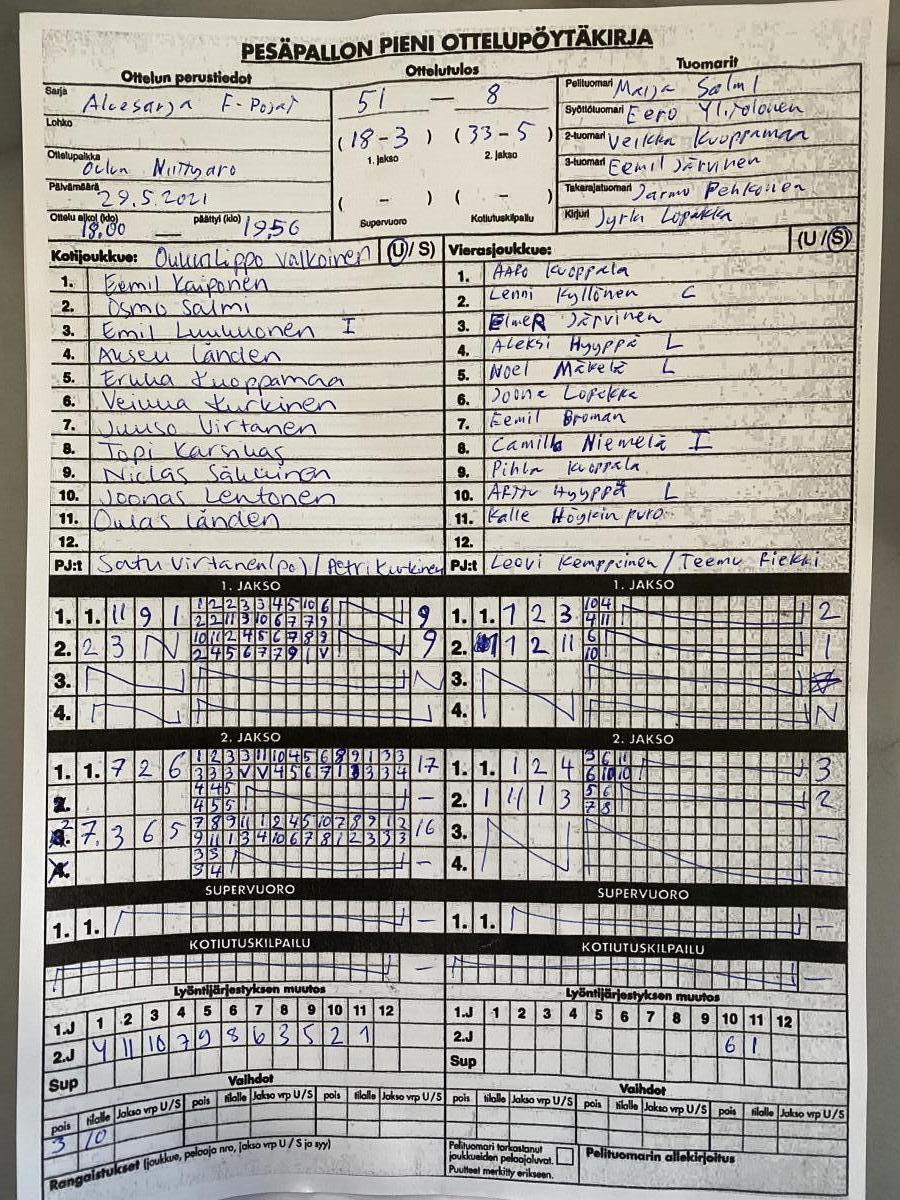 PESÄPALLON PIENI OTTELUPÖYTÄKIRJA
Ottelun perustiedot
Ottelutulos
Tuomarit
Sarja Aluesarja F-Pojat
51 — 8
Pelituomari Maija Salmi
Syöttötuomari Eero Ylitolonen
Lohko
(18-3) (33-5)
1. jakso 2. jakso
2-tuomari Veikka Kuoppamaa
Ottelupaikka Oulun Niittyaro
3-tuomari Eemil Järvinen
Päivämäärä 29.5.2021
( - ) ( - )
Takarajatuomari Jarmo Pehkonen
Ottelu alkoi (klo) 18.00 — päättyi (klo) 19.56
Supervuoro Kotiutuskilpailu
Kirjuri Jyrki Lopakka
Kotijoukkue: OulunLippo Valkoinen (U/S)
Vierasjoukkue: (U/S)
1. Eemil Kaiponen
2. Osmo Salmi
3. Emil Luukkonen I
4. Akseli Länden
5. Erkka Kuoppamaa
6. Veikka Kurkinen
7. Juuso Virtanen
8. Topi Karsikas
9. Niclas Säkkinen
10. Joonas Lehtonen
11. Oulas Länden
12.
PJ:t Satu Virtanen (po) / Petri Kurkinen
1. Aapo Kuoppala
2. Lenni Kyllönen C
3. Elmer Järvinen
4. Aleksi Hyyppä L
5. Noel Mäkelä L
6. Joona Lopakka
7. Eemil Broman
8. Camilla Niemelä I
9. Pihla Kuoppala
10. Arttu Hyyppä L
11. Kalle Höykinpuro
12.
PJ:t Leevi Kemppainen / Teemu Fiekki
1. JAKSO
1. 1. 11 9 1
1 2 2 3 3 4 5 10 6
2 2 11 3 10 6 7 7 9
9
2. 2 3 N
10 11 2 4 5 6 7 8 9
2 4 5 6 7 7 9 1 V
9
3. N
4.
1. JAKSO
1. 1. 1 2 3
10 4
4 11
2
2. 1 2 11
6
10
1
3.
4. N
2. JAKSO
1. 1. 7 2 6
1 2 3 3 11 10 4 5 6 8 9 1 3 3
3 3 3 V V 4 5 6 7 1 3 3 3 4
17
2.
4 4 5
4 5 5
—
3. 7. 3 6 5
7 8 9 11 1 2 4 5 10 7 8 9 1 2
9 11 1 3 4 10 6 7 8 1 2 3 3 3
16
4.
3 3
3 4
—
2. JAKSO
1. 1. 1 2 4
3 6 11
6 10 10
3
2. 1 11 1 3
5 6
7 8
2
3. —
4. —
SUPERVUORO
1. 1. —
SUPERVUORO
1. 1. —
KOTIUTUSKILPAILU
—
KOTIUTUSKILPAILU
—
Lyöntijärjestyksen muutos
1.J 1 2 3 4 5 6 7 8 9 10 11 12
2.J 4 11 10 7 9 8 6 3 5 2 1
Sup
Lyöntijärjestyksen muutos
1.J 1 2 3 4 5 6 7 8 9 10 11 12
2.J 6 1
Sup
Vaihdot
pois tilalle Jakso vrp U/S pois tilalle Jakso vrp U/S pois tilalle Jakso vrp U/S
3 10
Vaihdot
pois tilalle Jakso vrp U/S pois tilalle Jakso vrp U/S pois tilalle Jakso vrp U/S
Rangaistukset (joukkue, pelaaja nro, jakso vrp U / S ja syy)
Pelituomari tarkastanut
joukkueiden pelaajaluvat.
Puutteet merkitty erikseen.
Pelituomarin allekirjoitus